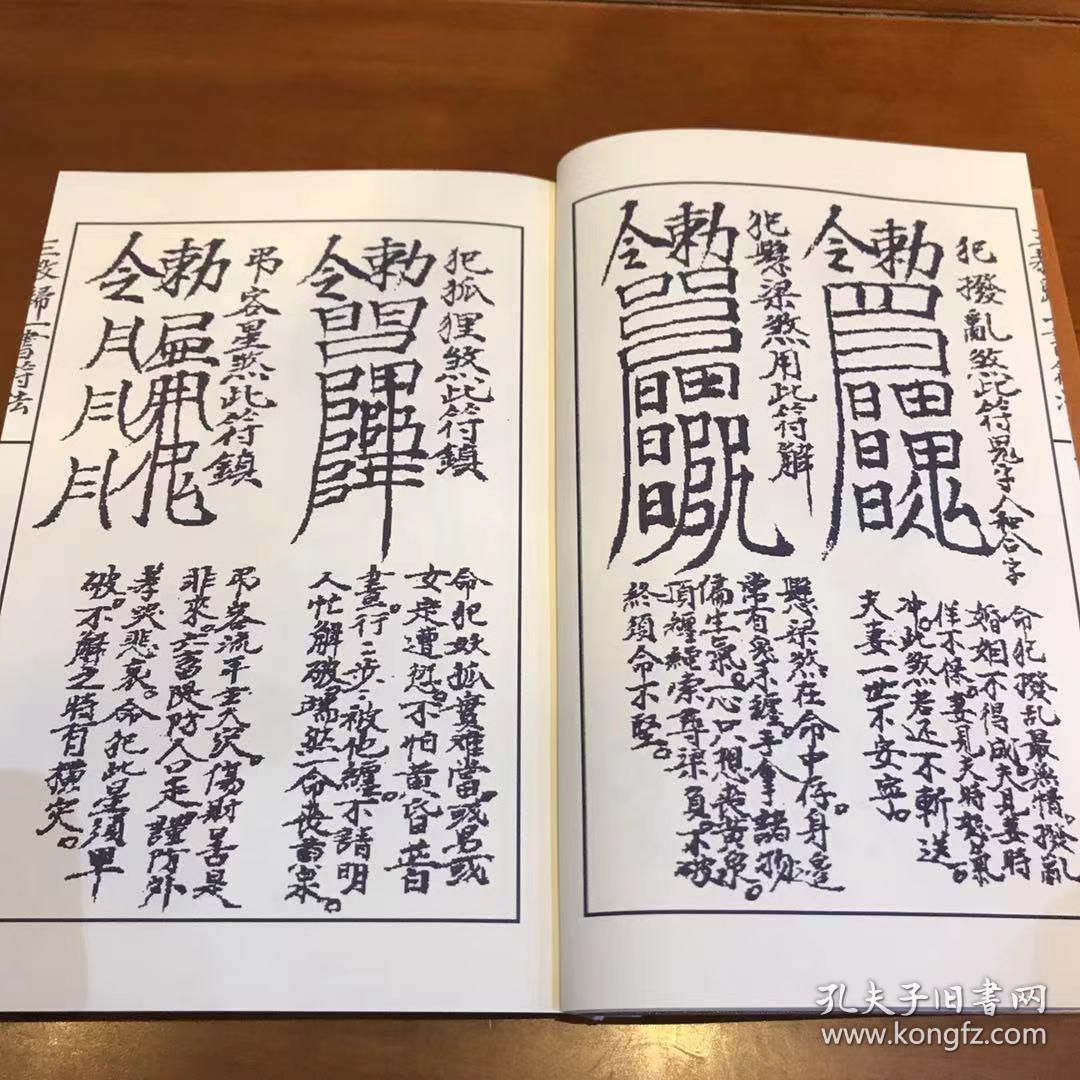 犯撥亂煞此符鬼字人和合字
勅令
命犯撥乱最無情。撥亂
婚姻不得成。夫見妻時
佯不保。妻見夫時怒氣
冲。此煞若还不斬送。
夫妻一世不安寧。
犯懸梁煞用此符解
勅令
懸梁煞在命中存。身邊
常有冤家纏。手拿諸物
偏生氣。心只想喪黃泉。
頂纏繩索尋梁
終須命不堅。
犯狐狸煞此符鎮
勅令
命犯妖狐實难當。或男或
女定遭愆。不怕黃昏並白
晝。行一步二被他纏。不請明
人忙解破。一命喪黃泉。
弔客星煞此符鎮
勅令
弔客流年主大災。傷財
非來。
孝哭悲哀。命犯此星須早
破。不解之時有橫灾。
三教歸一書符法
孔夫子旧書网
www.kongfz.com